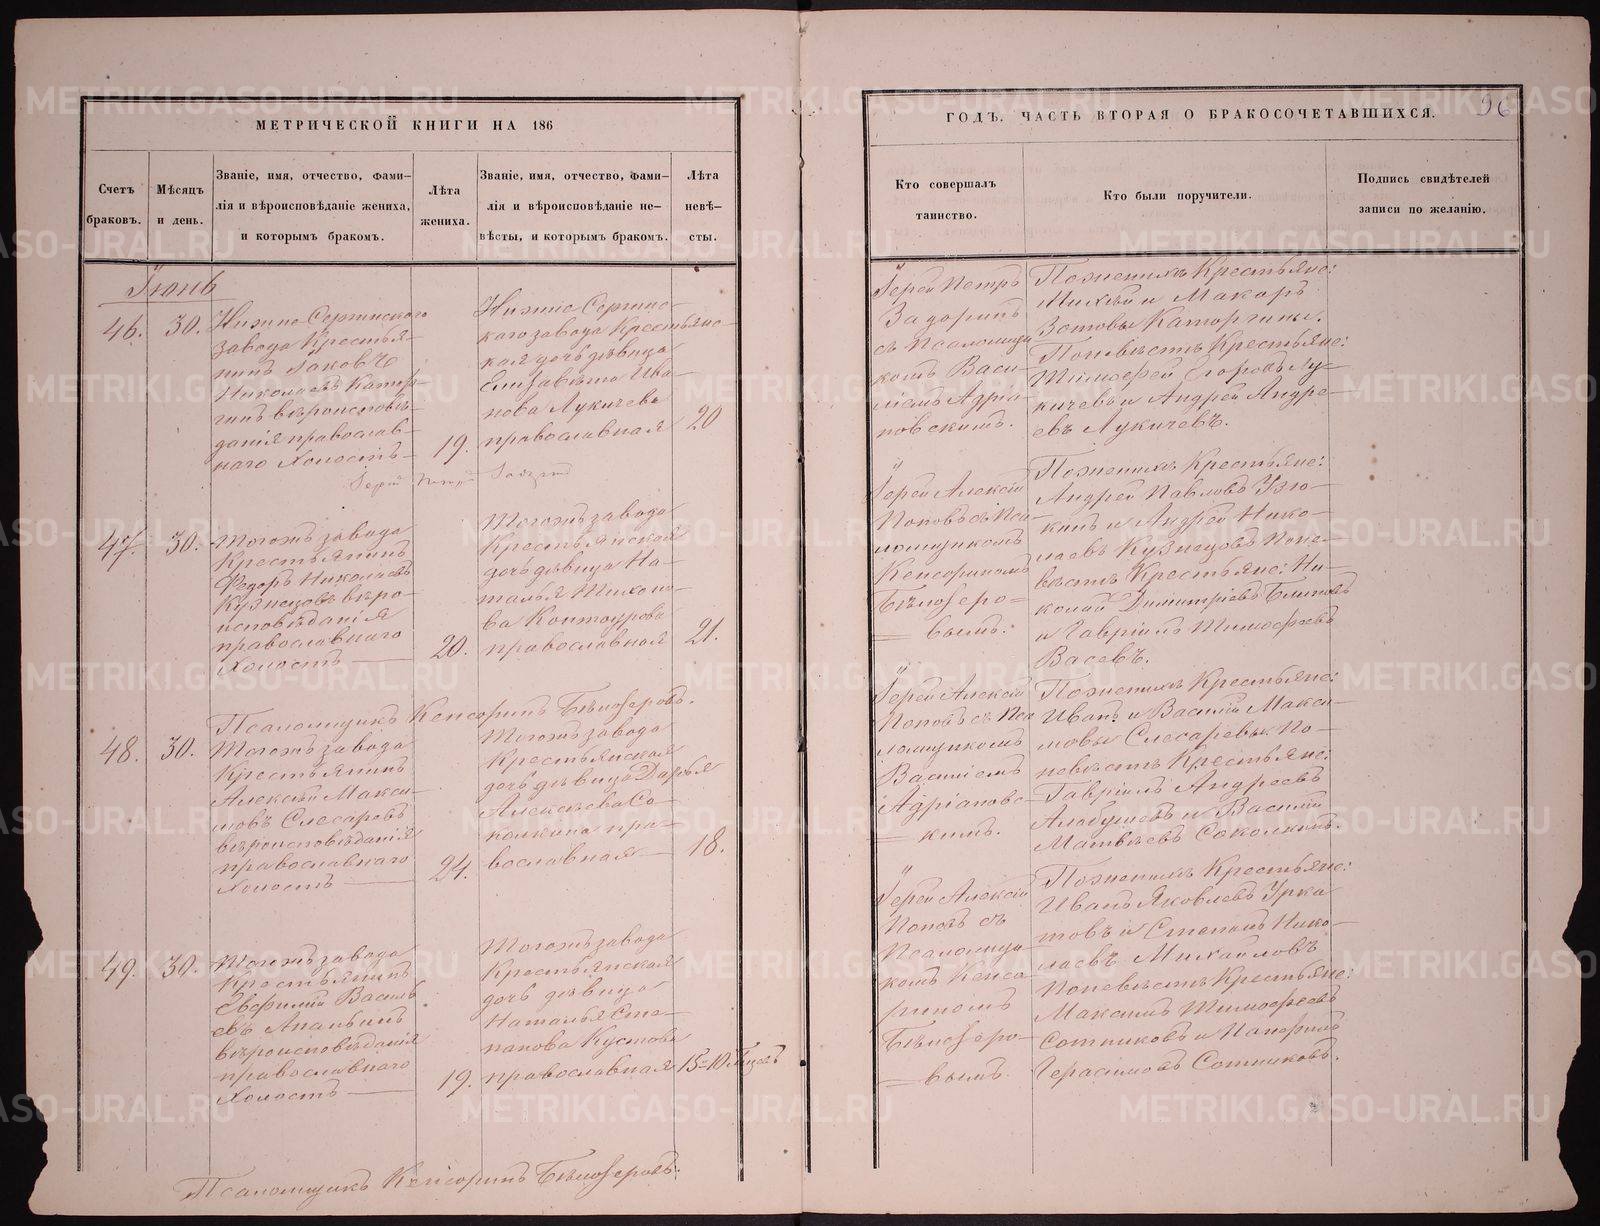 МЕТРИЧЕСКОЙ КНИГИ НА 186
Счетъ браковъ.
Мѣсяцъ и день.
Званіе, имя, отчество, фами-
лія и вѣроисповѣданіе жениха,
и которымъ бракомъ.
Лѣта
жениха.
Званіе, имя, отчество, фами-
лія и вѣроисповѣданіе не-
вѣсты, и которымъ бракомъ.
Лѣта
невѣ-
сты.
Іюнь
46.
30.
Нижне-Сергинского
завода Крестья-
нинъ Іаковъ
Николаевъ Катор-
гинъ вѣроисповѣ-
данія православ-
наго Холостъ
19.
Нижне Сергинс-
каго завода Крестьянс-
кая дочь дѣвица
Елизавета Ива-
нова Лукичева
православная
20
Іерей Петръ Задоринъ
47.
30.
Тогожъ завода
Крестьянинъ
Федоръ Николаевъ
Кузнецовъ вѣро-
исповѣданія
православнаго
Холостъ
20.
Тогожъ завода
Крестьянская
дочь дѣвица На-
талья Тихоно-
ва Контоурова
православная
21.
Псаломщикъ Кенсоринъ Бѣлозеровъ.
48.
30.
Тогожъ завода
Крестьянинъ
Алексѣй Макси-
мовъ Слесаревъ
вѣроисповѣданія
православнаго
Холостъ
24.
Тогожъ завода
Крестьянская
дочь дѣвица Дарья
Алексѣева Со-
колкина пра-
вославная
18.
49.
30.
Тогожъ завода
Крестьянинъ
Евфимій Василь
евъ Ананьинъ
вѣроисповѣданія
православнаго
Холостъ
19.
Тогожъ завода
Крестьянская
дочь дѣвица
Наталья Сте-
панова Кустова
православная
15-10 Мѣсяцъ
Псаломщикъ Кенсоринъ Бѣлозеровъ.
ГОДЪ. ЧАСТЬ ВТОРАЯ О БРАКОСОЧЕТАВШИХСЯ.
96
Кто совершалъ
таинство.
Кто были поручители.
Подпись свидѣтелей
записи по желанію.
Іерей Петръ
Задоринъ
съ Псаломщи
комъ Васи-
ліемъ Адріа-
новскимъ.
Поженихѣ Крестьяне:
Михѣй и Макаръ
Зотовы Каторгины.
Поневѣстѣ Крестьяне:
Тимофей Егоровъ Лу-
кичевъ и Андрей Андре-
евъ Лукичевъ.
Іерей Алексій
Поповъ съ Пса-
ломщикомъ
Кенсориномъ
Бѣлозеро=
=вымъ.
Поженихѣ Крестьяне:
Андрей Павловъ Узю-
кинъ и Андрей Нико-
лаевъ Кузнецовъ Поне-
вѣстѣ Крестьяне: Ни-
колай Димитріевъ Блиновъ
и Гавріилъ Тимофеевъ
Васевъ.
Іерей Алексій
Поповъ съ Пса
ломщикомъ
Василіемъ
Адріановс-
=кимъ.
Поженихѣ Крестьяне:
Иванъ и Василій Макси-
мовы Слесаревы. По-
невѣстѣ Крестьяне:
Гавріилъ Андреевъ
Алабушевъ и Василій
Матвѣевъ Соколкинъ.
Іерей Алексій
Поповъ съ
Псаломщи-
комъ Кенсо
риномъ
Бѣлозеро-
=вымъ.
Поженихѣ Крестьяне:
Иванъ Яковлевъ Урка
товъ и Степанъ Нико-
лаевъ Михайловъ
Поневѣстѣ Крестьяне:
Максимъ Тимофеевъ
Сотниковъ и Панфилъ
Герасимовъ Сотниковъ.
METRIKI.GASO-URAL.RU